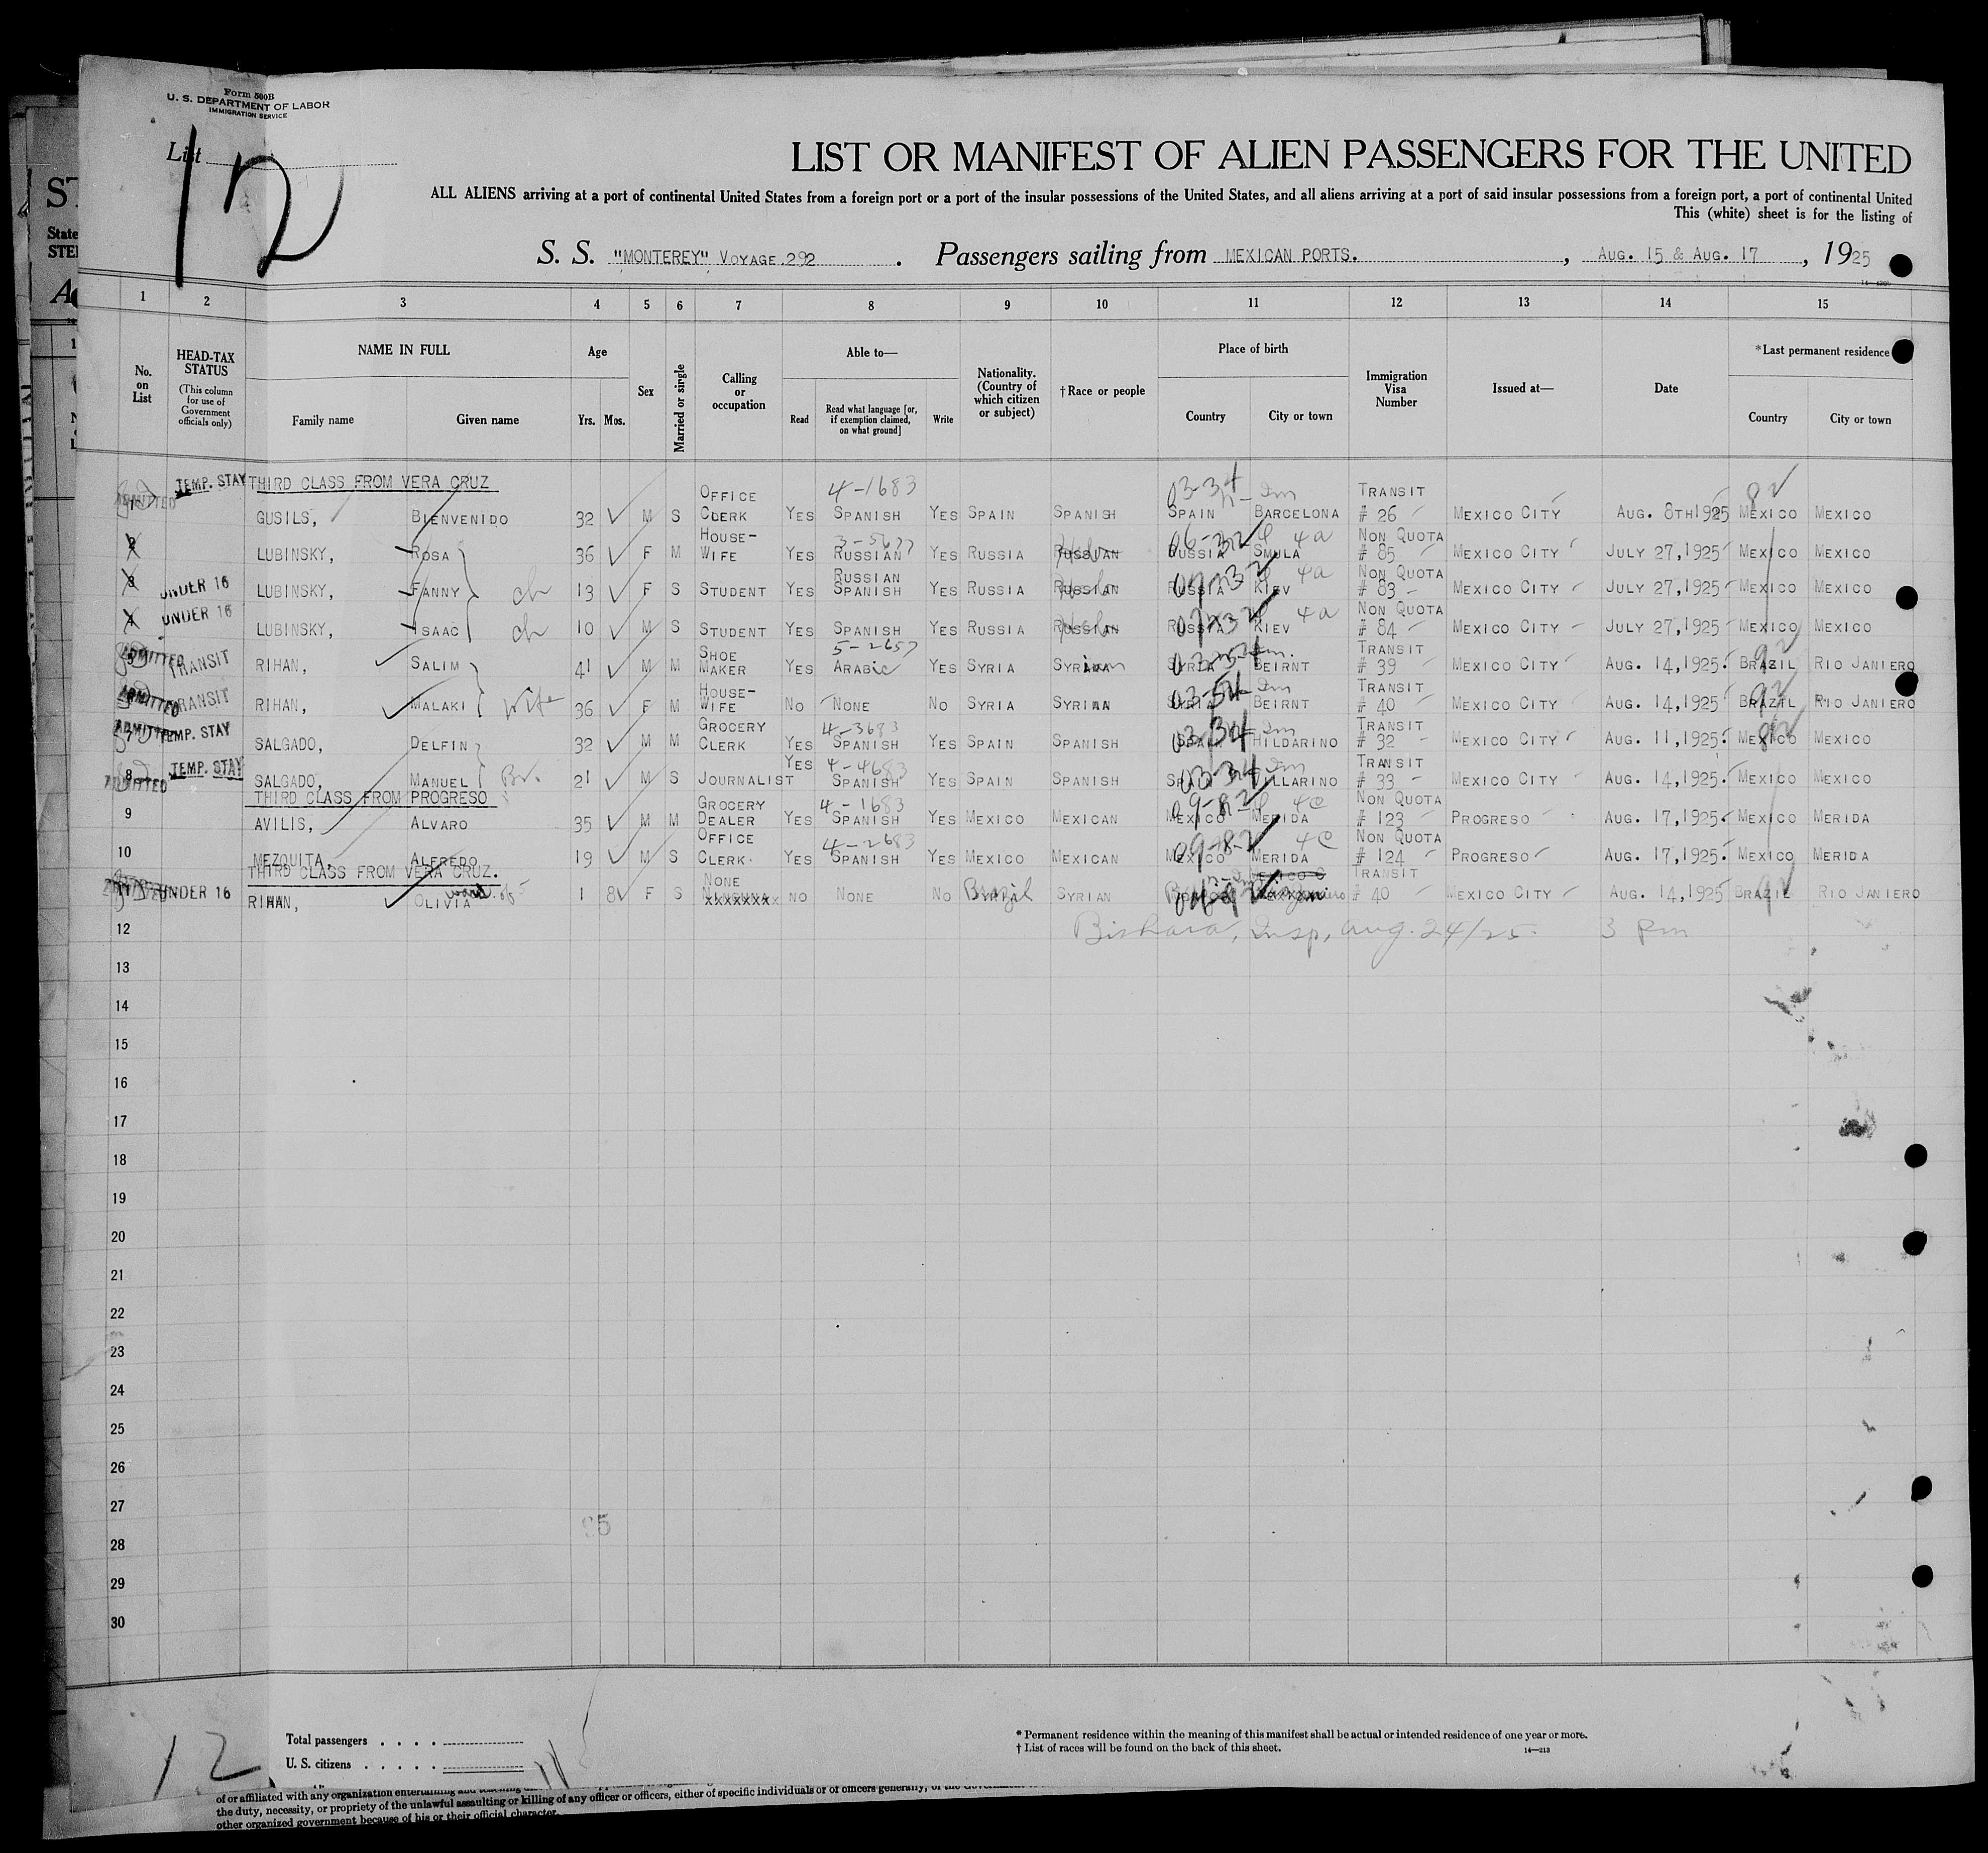 Form 500B
U. S. DEPARTMENT OF LABOR
IMMIGRATION SERVICE
List 12
LIST OR MANIFEST OF ALIEN PASSENGERS FOR THE UNITED
ALL ALIENS arriving at a port of continental United States from a foreign port or a port of the insular possessions of the United States, and all aliens arriving at a port of said insular possessions from a foreign port, a port of continental United
This (white) sheet is for the listing of
S. S. "MONTEREY" VOYAGE 292. Passengers sailing from MEXICAN PORTS., AUG. 15 & AUG. 17, 1925
1 2 3 4 5 6 7 8 9 10 11 12 13 14 15
No. on List
HEAD-TAX STATUS (This column for use of Government officials only)
NAME IN FULL
Family name Given name
Age
Yrs. Mos.
Sex
Married or single
Calling or occupation
Able to—
Read Read what language [or, if exemption claimed, on what ground] Write
Nationality. (Country of which citizen or subject)
†Race or people
Place of birth
Country City or town
Immigration Visa Number
Issued at—
Date
*Last permanent residence
Country City or town
TEMP. STAY THIRD CLASS FROM VERA CRUZ 4-1683 03-34
ADMITTED 1 GUSILS, BIENVENIDO 32 M S OFFICE CLERK YES SPANISH YES SPAIN SPANISH SPAIN BARCELONA TRANSIT # 26 MEXICO CITY AUG. 8TH 1925 MEXICO MEXICO
2 LUBINSKY, ROSA 36 F M HOUSE-WIFE YES RUSSIAN YES RUSSIA RUSSIAN RUSSIA SMULA 4a NON QUOTA # 85 MEXICO CITY JULY 27,1925 MEXICO MEXICO
3 UNDER 16 LUBINSKY, FANNY ch 13 F S STUDENT YES RUSSIAN SPANISH YES RUSSIA RUSSIAN RUSSIA KIEV 4a NON QUOTA # 83 MEXICO CITY JULY 27,1925 MEXICO MEXICO
4 UNDER 16 LUBINSKY, ISAAC ch 10 M S STUDENT YES SPANISH YES RUSSIA RUSSIAN RUSSIA KIEV 4a NON QUOTA # 84 MEXICO CITY JULY 27,1925 MEXICO MEXICO
ADMITTED 5 TRANSIT RIHAN, SALIM 41 M M SHOE MAKER YES 5-2657 ARABIC YES SYRIA SYRIAN SYRIA BEIRNT TRANSIT # 39 MEXICO CITY AUG. 14,1925. BRAZIL RIO JANIERO
ADMITTED TRANSIT RIHAN, MALAKI wife 36 F M HOUSE-WIFE NO NONE NO SYRIA SYRIAN SYRIA BEIRNT TRANSIT # 40 MEXICO CITY AUG. 14,1925 BRAZIL RIO JANIERO
ADMITTED 7 TEMP. STAY SALGADO, DELFIN 32 M M GROCERY CLERK YES 4-3683 SPANISH YES SPAIN SPANISH SPAIN 03-34 HILDARINO TRANSIT # 32 MEXICO CITY AUG. 11,1925. MEXICO MEXICO
ADMITTED 8 TEMP. STAY SALGADO, MANUEL Br. 21 M S JOURNALIST YES 4-4683 SPANISH YES SPAIN SPANISH SPAIN 03-34 VILLARINO TRANSIT # 33 MEXICO CITY AUG. 14,1925. MEXICO MEXICO
THIRD CLASS FROM PROGRESO
9 AVILIS, ALVARO 35 M M GROCERY DEALER YES 4-1683 SPANISH YES MEXICO MEXICAN MEXICO MERIDA 4c NON QUOTA # 123 PROGRESO AUG. 17,1925. MEXICO MERIDA
10 MEZQUITA, ALFREDO 19 M S OFFICE CLERK. YES 4-2683 SPANISH YES MEXICO MEXICAN MEXICO MERIDA 4c NON QUOTA # 124 PROGRESO AUG. 17,1925. MEXICO MERIDA
THIRD CLASS FROM VERA CRUZ.
11 UNDER 16 RIHAN, OLIVIA 1 8 F S NONE NO NONE NO Brazil SYRIAN TRANSIT # 40 MEXICO CITY AUG. 14,1925 BRAZIL RIO JANIERO
12 Bishara, Insp, Aug. 24/25. 3 pm
13
14
15
16
17
18
19
20
21
22
23
24
25
26
27
28
29
30
12
Total passengers
U. S. citizens
* Permanent residence within the meaning of this manifest shall be actual or intended residence of one year or more.
† List of races will be found on the back of this sheet. 14—213
of or affiliated with any organization
the duty, necessity, or propriety of the unlawful assaulting or killing of any officer or officers, either of specific individuals or of officers generally, of the
other organized government because of his or their official character.